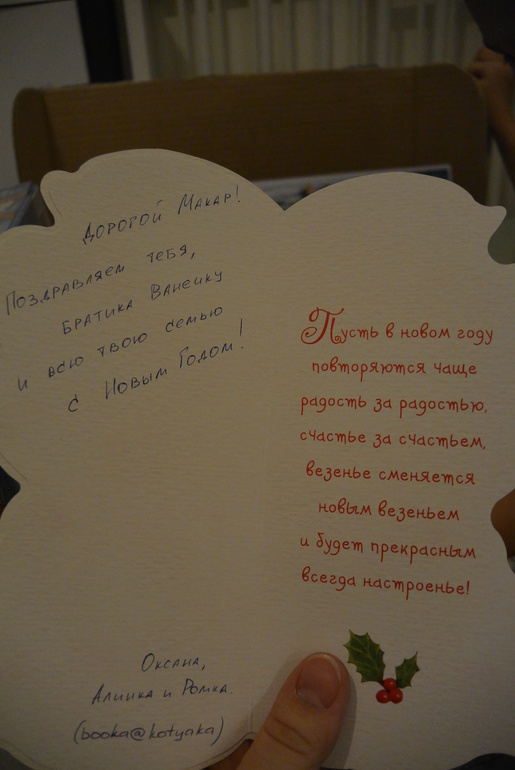 Дорогой Макар!
Поздравляем тебя,
братика Ванечку
и всю твою семью
с Новым Годом!
Оксана,
Алинка и Ромка.
(booka@kotyaka)
Пусть в новом году
повторяются чаще
радость за радостью,
счастье за счастьем,
везенье сменяется
новым везеньем
и будет прекрасным
всегда настроенье!